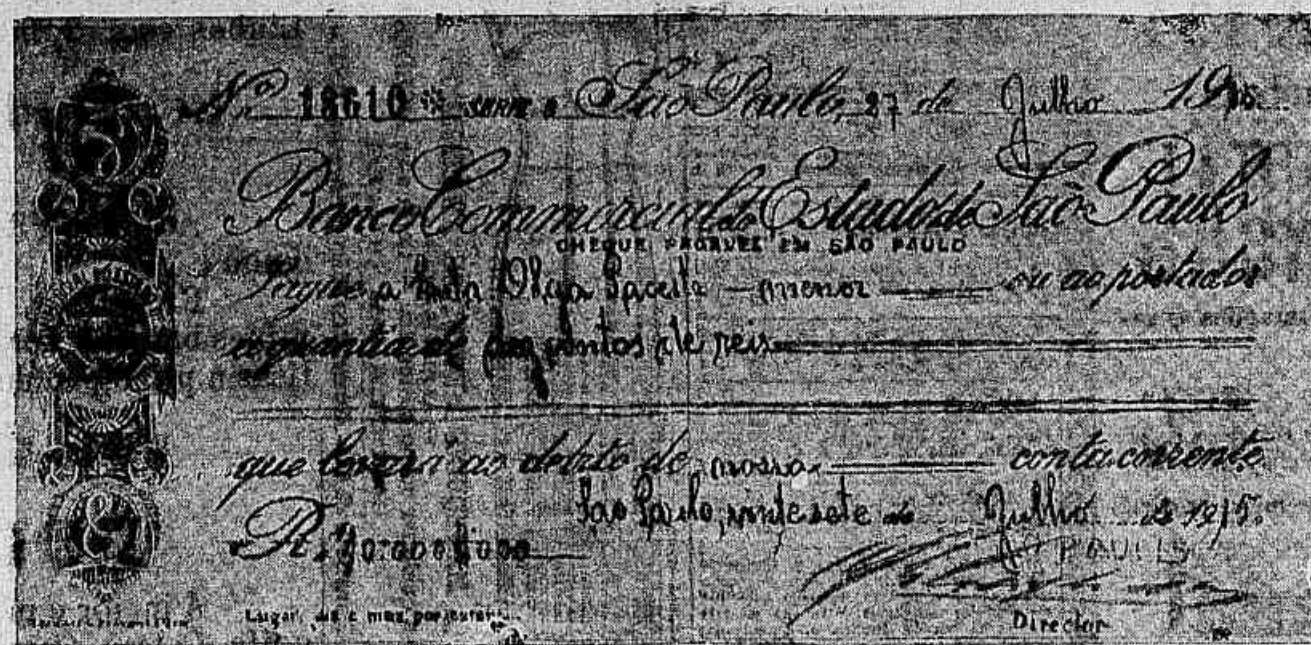 Nº 18610 SERIE São Paulo, 27 de Julho 1915
Banco Commercial do Estado de São Paulo
CHEQUE PAGAVEL EM SÃO PAULO
Pague a Olga menor ou ao portador
a quantia de dez contos de reis
que levará ao debito de nossa conta corrente
São Paulo, vinte sete de Julho de 1915.
R.
PAULO
Lugar, dia e mez, por extenso
Director